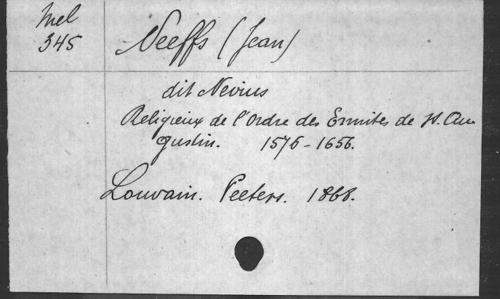 Mel
345
Neeffs (Jean)
dit Nevius
Religieux de l'Ordre des Ermites de St. Au
gustin. 1576-1656.
Louvain. Peeters. 1868.